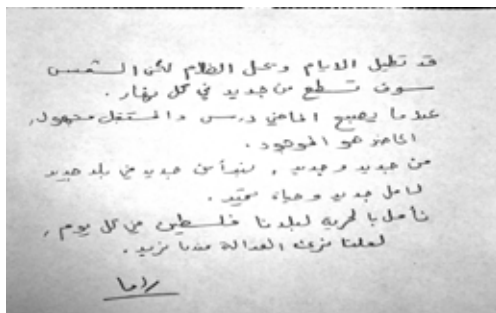 قد تطيل الايام ويحل الظلام لكن الشمس
سوف تسطع من جديد في كل نهار.
عندما يصبح الماضي درس والمستقبل مجهول,
الحاضر هو الموجود.
من جديد وجديد, نبدأ من جديد في بلد جديد
لأمل جديد وحياة
نأمل بالحرية لبلدنا فلسطين في كل يوم,
لعلنا نرى العدالة عندما نريد.
راما